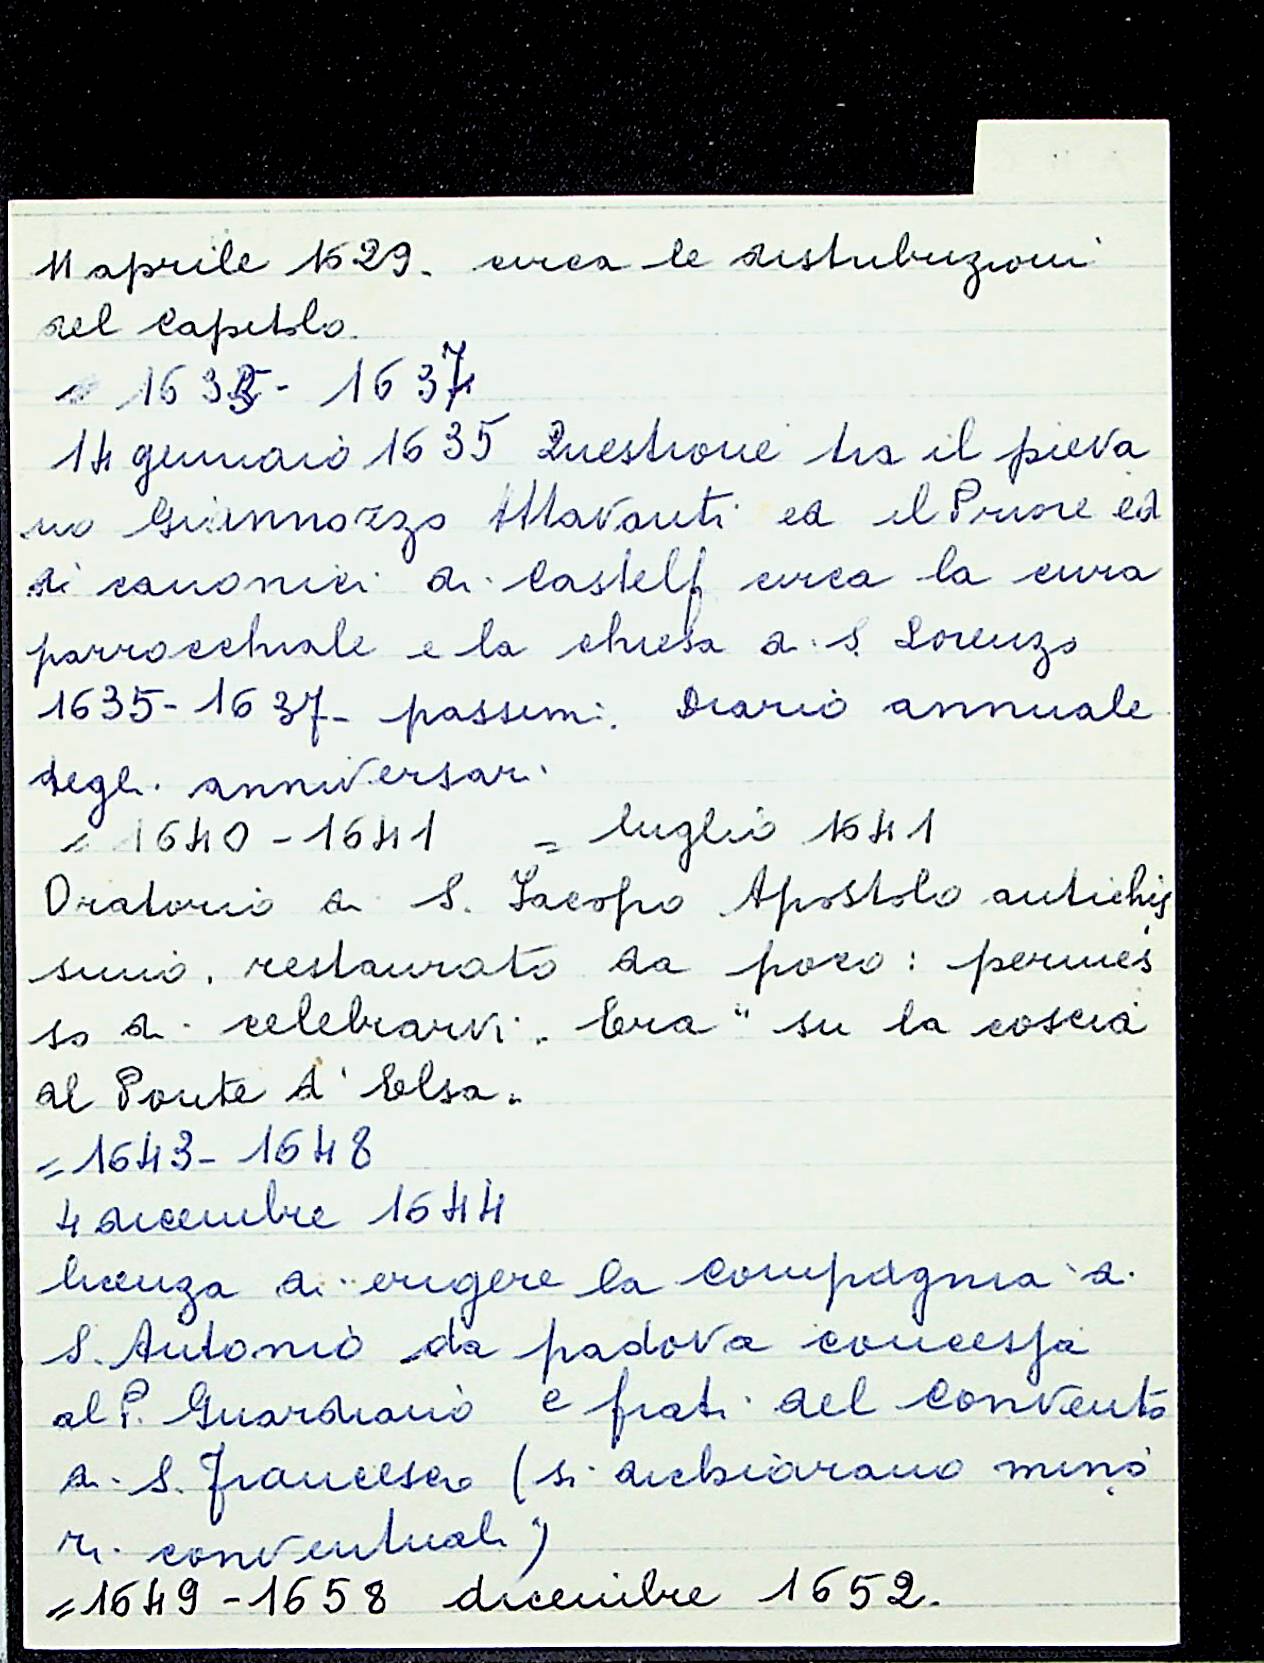 11 aprile 1629. circa le distribuzioni
del Capitolo.
= 1635 - 1637
14 gennaio 1635 Questione tra il pieva
no Giannozzo Attavanti ed il Priore ed
di canonici di Castelf circa la cura
parrocchiale e la chiesa di S. Lorenzo
1635 - 1637 - passim. Diario annuale
degli anniversari
= 1640 - 1641 = luglio 1641
Oratorio di S. Jacopo Apostolo antichis
simo, restaurato da poco: permes
so di celebrarvi. Era " su la coscia
al Ponte d'Elsa.
= 1643 - 1648
4 dicembre 1644
licenza di erigere la Compagnia di
S. Antonio da padova concessa
al P. Guardiano e frati del Convento
di S. Francesco (si dichiarano mino
ri conventuali)
= 1649 - 1658 dicembre 1652.